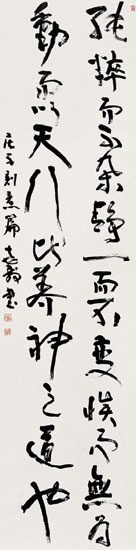 純粹而不雜靜一而不變惔而無為
動而以天行此養神之道也
庄子刻意篇